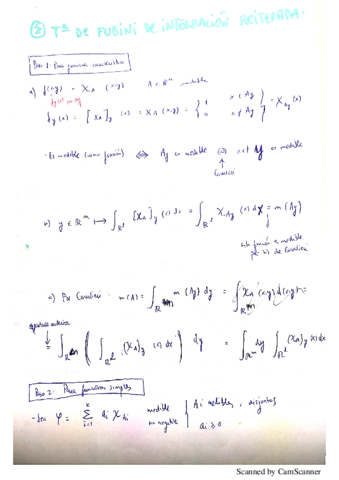 ⑤ Tª DE FUBINI DE INTEGRACIÓN REITERADA.
Paso 1: Para funciones características
a) f(x,y) = χ_A (x,y) A ⊂ ℝⁿ medible
f_y(x) = [χ_A]_y (x) = χ_A (x,y) = { 1 x ∈ A_y 0 x ∉ A_y } = χ_{A_y}(x)
· Es medible (como función) ⟺ A_y es medible
b) y ∈ ℝᵐ ⟼ ∫_{ℝˡ} [χ_A]_y (x) dx = ∫_{ℝˡ} χ_{A_y} (x) dx = m(A_y)
esta función es medible
por b) de Cavalieri
c) Por Cavalieri: m(A) = ∫ m(A_y) dy = ∫ χ_A (x,y) d(x,y) =
apartado anterior
= ∫_{ℝᵐ} ( ∫_{ℝˡ} (χ_A)_y (x) dx ) dy = ∫_{ℝᵐ} dy ∫_{ℝˡ} (χ_A)_y (x) dx
Paso 2: Para funciones simples
- Sea φ = Σ_{i=1}^{k} a_i χ_{A_i} medible no negativa { A_i medibles, disjuntos a_i ≥ 0
Scanned by CamScanner